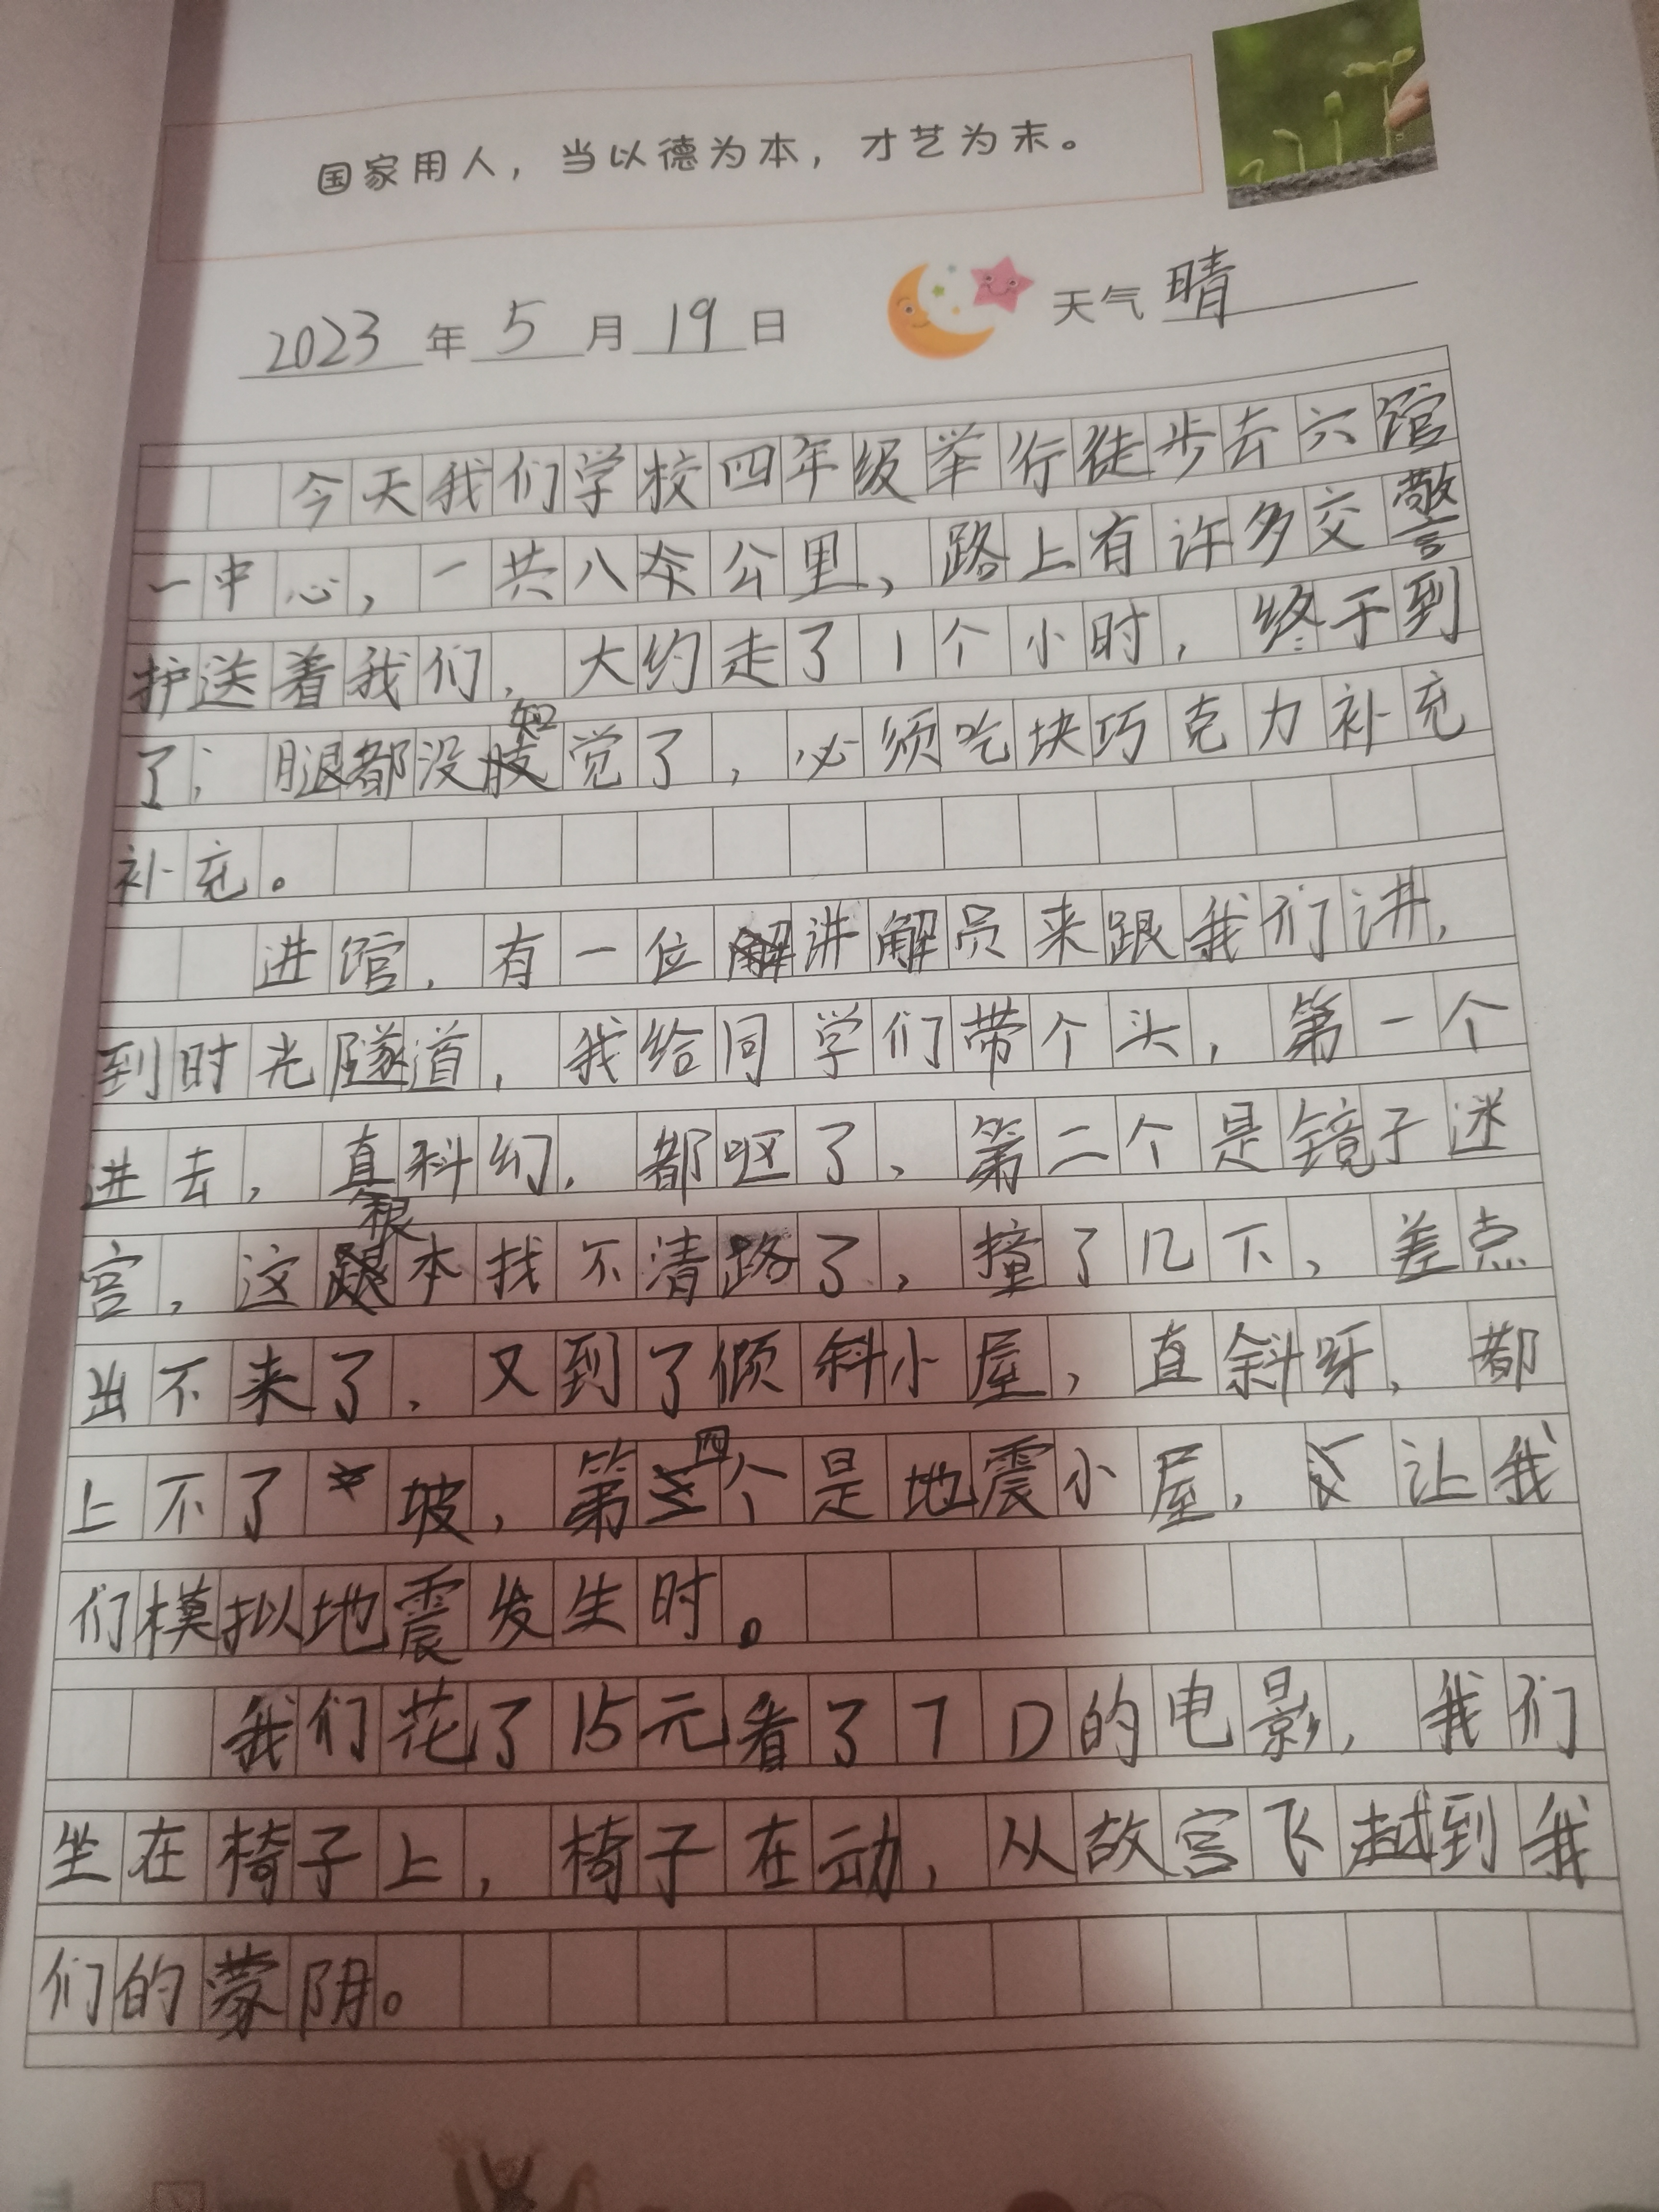 国家用人，当以德为本，才艺为末。
2023年5月19日 天气 晴
今天我们学校四年级举行徒步去六馆
一中心，一共八公里，路上有许多交警
护送着我们，大约走了1个小时，终于到
了；腿都没知觉了，必须吃块巧克力补充
补充。
进馆，有一位讲解员来跟我们讲，
到时光隧道，我给同学们带个头，第一个
进去，直科幻，都呕了，第二个是镜子迷
宫，这根本找不清路了，撞了几下，差点
出不来了，又到了倾斜小屋，直斜呀，都
上不了坡，第四个是地震小屋，让我
们模拟地震发生时。
我们花了15元看了7D的电影，我们
坐在椅子上，椅子在动，从故宫飞越到我
们的蒙阴。